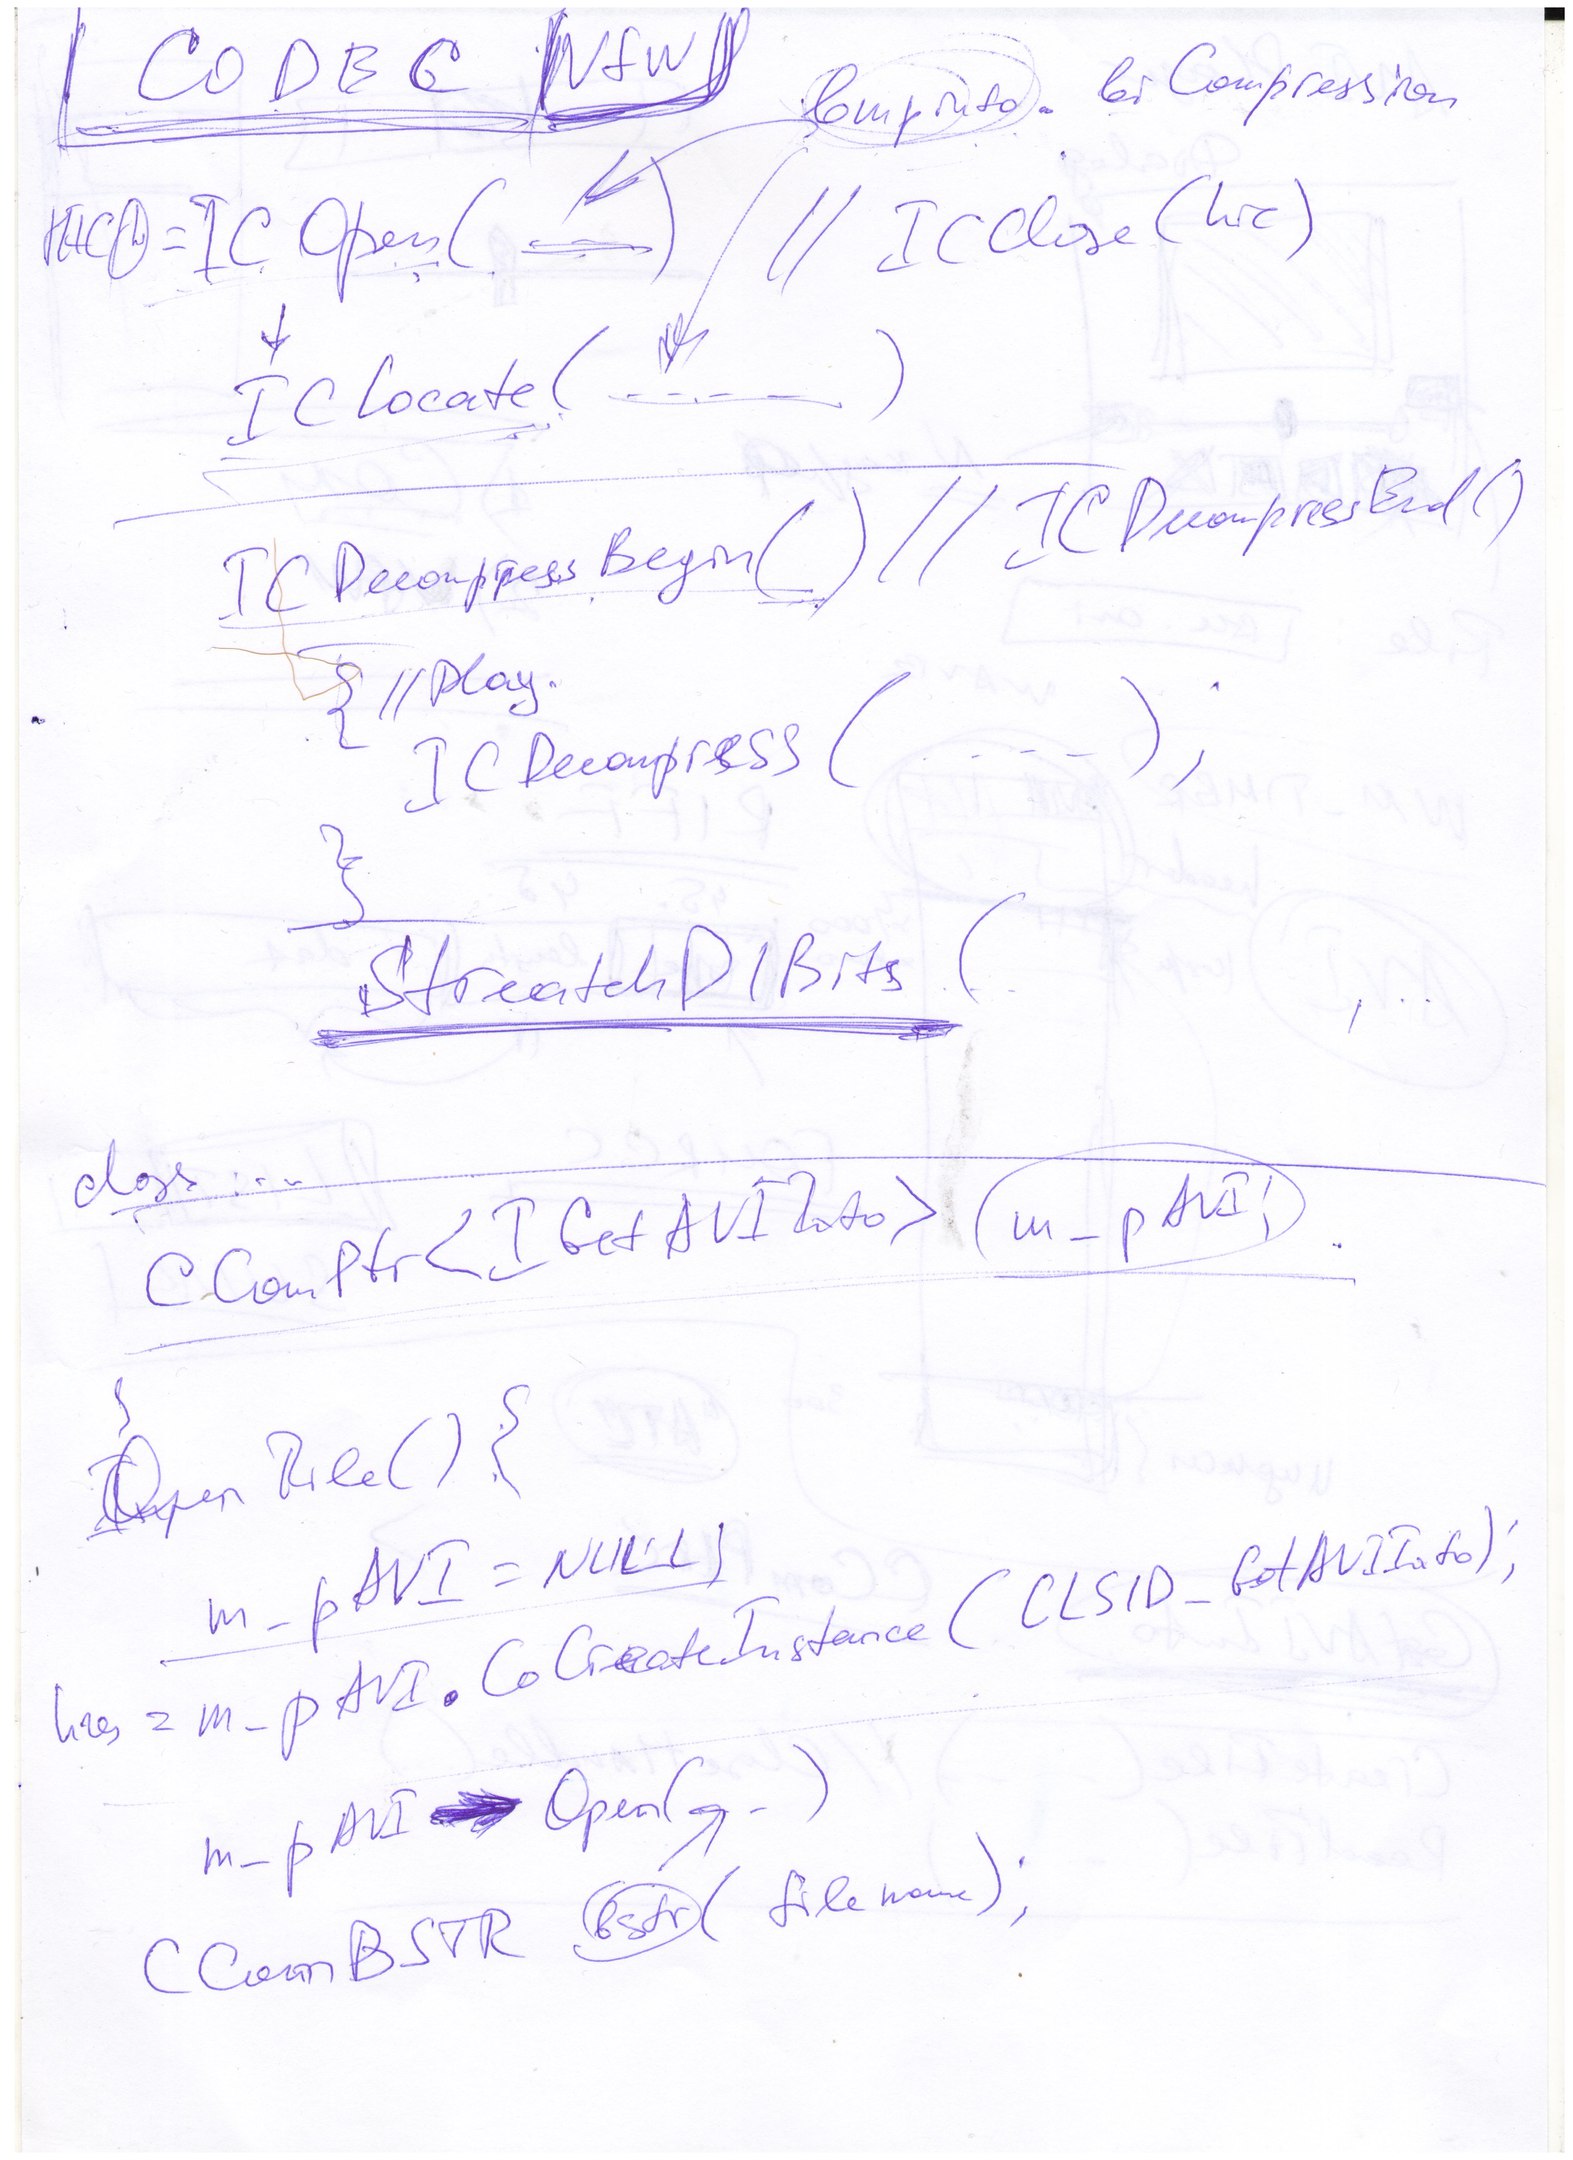 CODEC VfW
bmpinfo. biCompression
HIC = ICOpen( ) // ICClose(hic)
ICLocate( ----- )
ICDecompressBegin( ) // ICDecompressEnd()
{ // Play.
ICDecompress( ---- );
}
StreatchDIBits ( , ...
class ....
CComPtr<IGetAVIInfo> m_pAVI;
}
OpenFile() {
m_pAVI = NULL;
hres = m_pAVI.CoCreateInstance(CLSID_GetAVIInfo);
m_pAVI → Open( - )
CComBSTR bstr( filename);